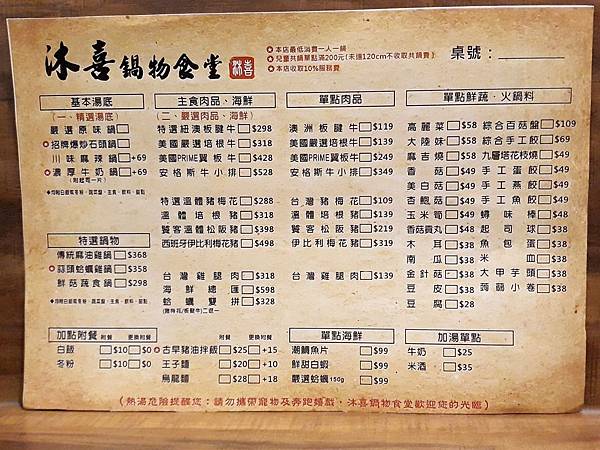 沐喜鍋物食堂 沐喜
本店最低消費一人一鍋
兒童共鍋單點滿200元(未達120cm不收取共鍋費)
本店收取10%服務費
桌號：
基本湯底
(一、精選湯底)
嚴選原味鍋
招牌爆炒石頭鍋
川味麻辣鍋 +69
濃厚牛奶鍋 +69
特選鍋物
傳統麻油雞鍋 $368
蒜頭蛤蠣雞鍋 $358
鮮菇蔬食鍋 $298
主食肉品、海鮮
(二、嚴選肉品、海鮮)
特選紐澳板腱牛 $298
美國嚴選培根牛 $318
美國PRIME翼板牛 $428
安格斯牛小排 $528
特選溫體豬梅花 $288
溫體培根豬 $318
饕客溫體松阪豬 $398
西班牙伊比利梅花豬 $498
台灣雞腿肉 $318
海鮮總匯 $598
蛤蠣雙拼 $328
單點肉品
澳洲板腱牛 $119
美國嚴選培根牛 $139
美國PRIME翼板牛 $249
安格斯牛小排 $349
台灣豬梅花 $109
溫體培根豬 $139
饕客松阪豬 $219
伊比利梅花豬 $319
台灣雞腿肉 $139
單點鮮蔬．火鍋料
高麗菜 $58 綜合百菇盤 $109
大陸妹 $58 綜合手工餃 $69
麻吉燒 $58 九層塔花枝燒 $49
香菇 $49 手工蛋餃 $49
美白菇 $49 手工燕餃 $49
杏鮑菇 $49 手工魚餃 $49
玉米筍 $49 蟳味棒 $48
香菇貢丸 $38 起司球 $38
木耳 $38 魚包蛋 $38
南瓜 $38 米血 $38
金針菇 $38 大甲芋頭 $38
豆皮 $38 蒟蒻小卷 $38
豆腐 $28
加點附餐 附餐 更換附餐
白飯 $10 $0
冬粉 $10 $0
附餐 更換附餐
古早豬油拌飯 $25 +15
王子麵 $20 +10
烏龍麵 $28 +18
單點海鮮
潮鯛魚片 $99
鮮甜白蝦 $99
嚴選蛤蠣150g $99
加湯單點
牛奶 $25
米酒 $35
(熱湯危險提醒您：請勿攜帶寵物及奔跑嬉戲，沐喜鍋物食堂歡迎您的光臨)